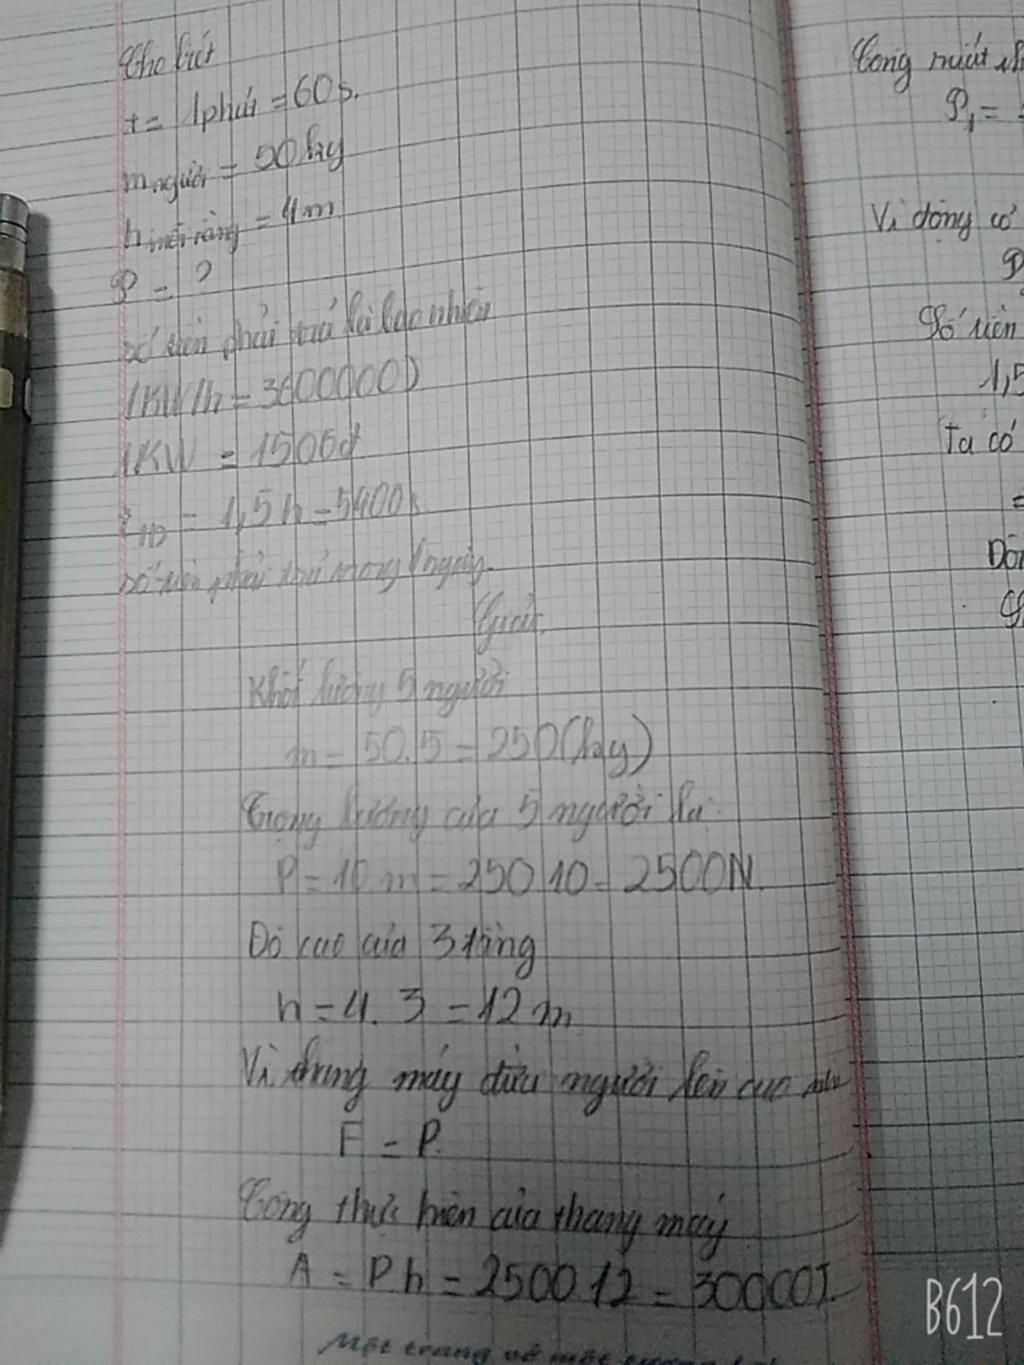 Cho biết
t = 1phút = 60s.
m người = 50kg
h mỗi tầng = 4m
P = ?
Số tiền phải trả là bao nhiêu
1KW/h = 3600000J
1KW = 1500đ
= 1,5h = 5400s
Số tiền phải trả trong 1 ngày.
Giải.
Khối lượng 5 người
m = 50.5 = 250(kg)
Trọng lượng của 5 người là:
P = 10 m = 250 10 = 2500N.
Độ cao của 3 tầng
h = 4. 3 = 12m
Vì thang máy đưa người lên cao nên
F = P.
Công thực hiện của thang máy
A = P h = 2500 12 = 30000J.
Một trang vở
Công suất
P₁ =
Vì động cơ
P
Số tiền
1,5
Ta có
=
B612